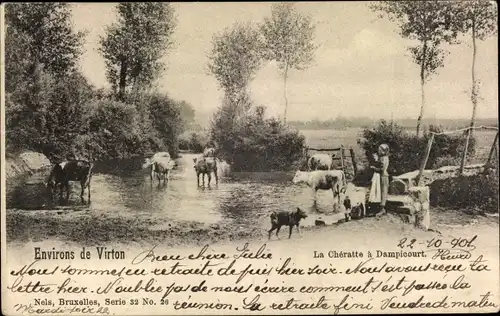 Environs de Virton
La Chératte à Dampicourt.
22-10 901
Heure
Bien chère Julie
Nous sommes en retraite depuis hier soir. Nous avons reçu la
lettre hier. N'oublie pas de nous récrire comment s'est passée la
Nels, Bruxelles, Serie 32 No. 26
réunion. La retraite fini Vendredi matin
Mardi soir 22